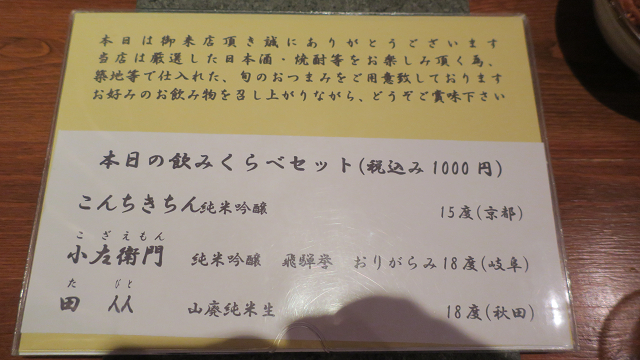 本日は御来店頂き誠にありがとうございます
当店は厳選した日本酒・焼酎等をお楽しみ頂く為、
築地等で仕入れた、旬のおつまみをご用意致しております
お好みのお飲み物を召し上がりながら、どうぞご賞味下さい
本日の飲みくらべセット(税込み1000円)
こんちきちん純米吟醸 15度(京都)
こざえもん
小左衛門 純米吟醸 飛騨誉 おりがらみ18度(岐阜)
たびと
田人人 山廃純米生 18度(秋田)